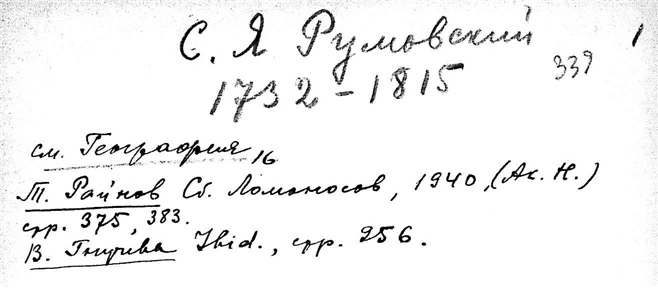 С. Я Румовский 1
1732-1815 339
см. География 16
Т. Райнов Сб. Ломоносов, 1940, (Ак. Н.)
стр. 375, 383.
В. Гнучева Ibid., стр. 256.